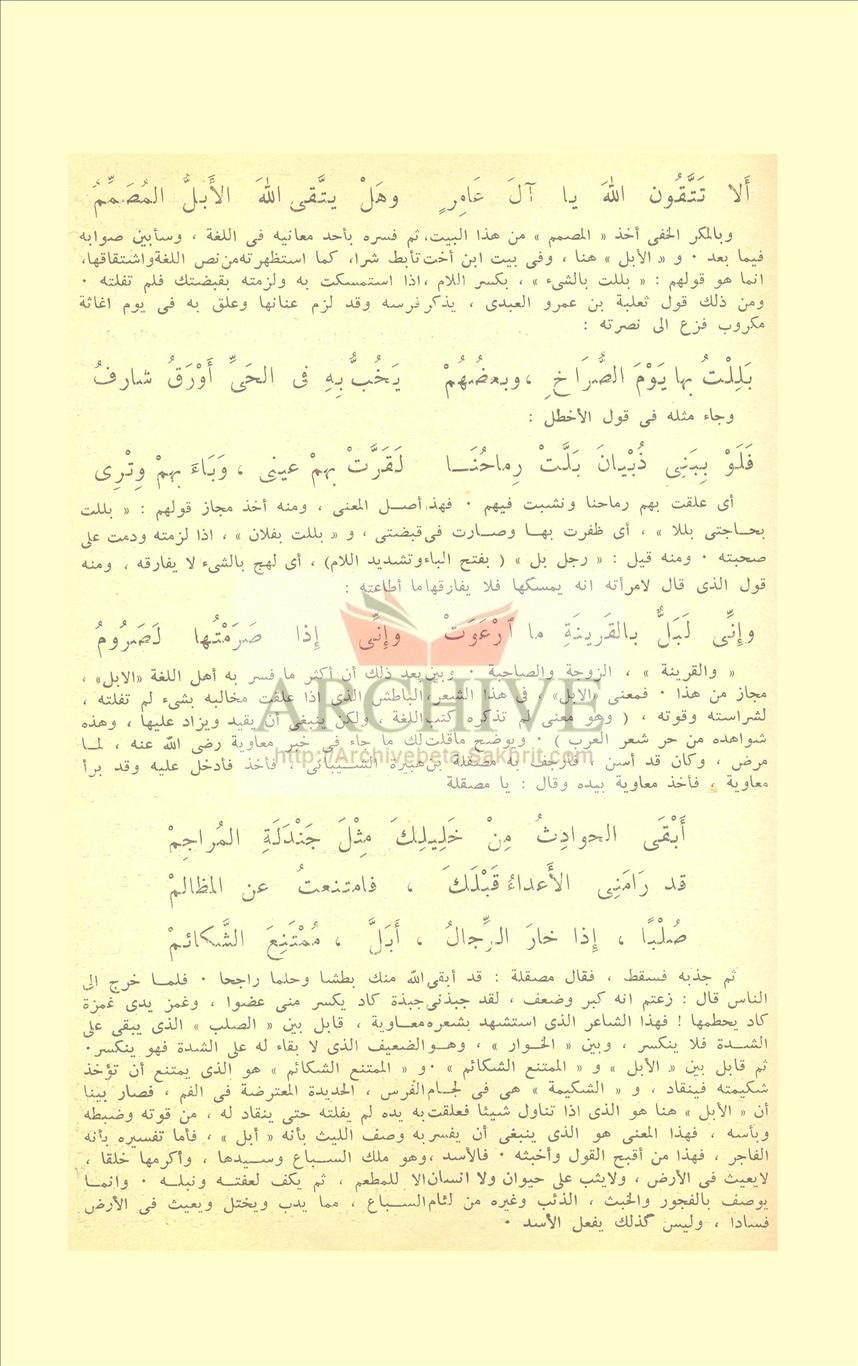 أَلا تَتَّقُون اللهَ يا آلَ عَامِرٍ وهَلْ يتَّقى اللهَ الأَبلُّ المُصَمِّمُ
وبالمكر الخفى أخذ « المصمم » من هذا البيت، ثم فسره بأحد معانيه فى اللغة ، وسأبين صوابه
فيما بعد ٠ و « الأبل » هنا ، وفى بيت ابن أخت تأبط شرا، كما استظهرته من نص اللغة واشتقاقها،
انما هو قولهم : « بللت بالشىء » ، بكسر اللام ، اذا استمسكت به ولزمته بقبضتك فلم تفلته ٠
ومن ذلك قول ثعلبة بن عمرو العبدى ، يذكر فرسه وقد لزم عنانها وعلق به فى يوم اغاثة
مكروب فزع الى نصرته :
بَلِلْتُ بها يَوْمَ الصُّرَاخِ ، وبعضُهُمْ يَخُبُّ بِهِ فى الحَىِّ أَوْرَقُ شارفُ
وجاء مثله فى قول الأخطل :
فَلَوْ بِبَنِى ذُبْيانَ بَلَّتْ رِماحُنَا لَقَرَّتْ بهمْ عينى ، وَبَاءَ بهمْ وِتْرِى
أى علقت بهم رماحنا ونشبت فيهم ٠ فهذ أصل المعنى ، ومنه أخذ مجاز قولهم : « بللت
بحاجتى بللا » ، أى ظفرت بها وصارت فى قبضتى ، و « بللت بفلان » ، اذا لزمته ودمت على
صحبته ٠ ومنه قيل : « رجل بل » ( بفتح الباء وتشديد اللام) ، أى لهج بالشىء لا يفارقه ، ومنه
قول الذى قال لامرأته انه يمسكها فلا يفارقها ما أطاعته :
وإنِّى لَبَلٌّ بالقَرِينَةِ ما ٱرْعَوَتْ وإنِّى إذا صَرَمْتُها لَصَرُومُ
« والقرينة » ، الزوجة والصاحبة ٠ وبين بعد ذلك أن أكثر ما فسر به أهل اللغة «الابل» ،
مجاز من هذا ٠ فمعنى «الابل» ، فى هذا الشعر، الباطش الذى اذا علقت مخالبه بشىء لم تفلته ،
لشراسته وقوته ، ( وهو معنى لم تذكره كتب اللغة ، ولكن ينبغى أن يقيد ويزاد عليها ، وهذه
شواهده من حر شعر العرب ) ٠ ويوضح ما قلت لك ما جاء فى خبر معاوية رضى الله عنه ، لما
مرض ، وكان قد أسن ، فأرجف به مصقلة بن هبيرة الشيبانى ، فأخذ فأدخل عليه وقد برأ
معاوية ، فأخذ معاوية بيده وقال : يا مصقلة
أَبْقَى الحوادِثُ مِنْ خَلِيلِكَ مِثْلَ جَنْدَلَةِ المُراجِمْ
قد رَامَنِى الأَعداءُ قَبْلَكَ ، فامتنعتُ عن المظالمْ
صُلْبًا ، إذا خارَ الرِّجالُ ، أَبَلَّ ، مُمْتَنِعَ الشَّكائمْ
ثم جذبه فسقط ، فقال مصقلة : قد أبقى الله منك بطشا وحلما راجحا ٠ فلما خرج الى
الناس قال : زعتم انه كبر وضعف ، لقد جبذنى جبذة كاد يكسر منى عضوا ، وغمز يدى غمزة
كاد يحطمها ! فهذا الشاعر الذى استشهد بشعره معاوية ، قابل بين « الصلب » الذى يبقى على
الشدة فلا ينكسر ، وبين « الخوار » ، وهو الضعيف الذى لا بقاء له على الشدة فهو ينكسر٠
ثم قابل بين « الأبل » و « الممتنع الشكائم » ٠ و « الممتنع الشكائم » هو الذى يمتنع أن تؤخذ
شكيمته فينقاد ، و « الشكيمة » هى فى لجام الفرس ، الحديدة المعترضة فى الفم ، فصار بينا
أن « الأبل » هنا هو الذى اذا تناول شيئا فعلقت به يده لم يفلته حتى ينقاد له ، من قوته وضبطه
وبأسه ، فهذا المعنى هو الذى ينبغى أن يفسر به وصف الليث بأنه « أبل » ، فأما تفسيره بأنه
الفاجر ، فهذا من أقبح القول وأخبثه ٠ فالأسد ، وهو ملك السباع وسيدها ، وأكرمها خلقا ،
لايعيث فى الأرض ، ولايثب على حيوان ولا انسان الا للمطعم ، ثم يكف لعفته ونبله ٠ وانما
يوصف بالفجور والخبث ، الذئب وغيره من لئام السباع ، مما يدب ويختل ويعيث فى الأرض
فسادا ، وليس كذلك يفعل الأسد ٠
ARCHIVE
http://Archivebeta.Sakhrit.com